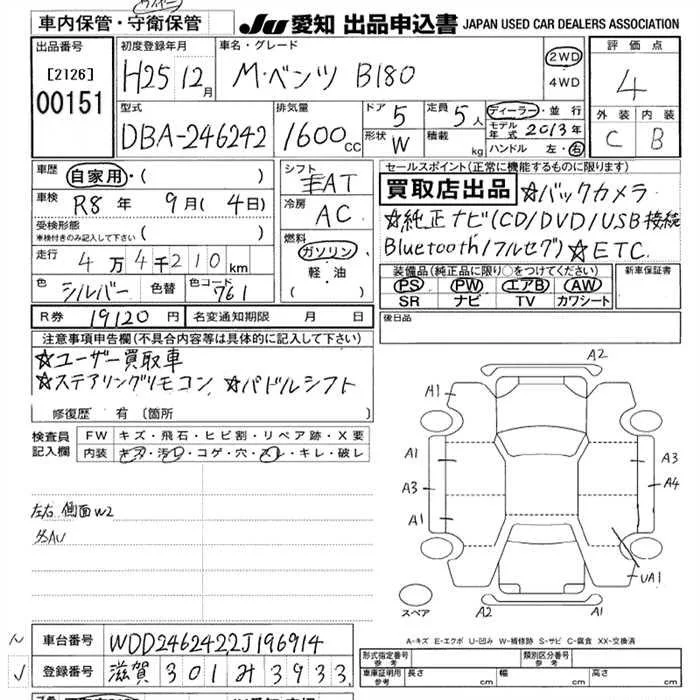 車内保管・守衛保管
JU 愛知 出品申込書 JAPAN USED CAR DEALERS ASSOCIATION
出品番号
[2126]
00151
初度登録年月
H25 12月
車名・グレード
M・ベンツ B180
2WD
4WD
評価点
4
外装 内装
C B
型式
DBA-246242
排気量
1600cc
ドア 5
形状 W
定員 5人
積載 kg
ディーラー・並行
モデル年式 2013年
ハンドル 左・右
車歴
自家用・( )
車検 R8年 9月(4日)
受検形態
※検付きのみ記入して下さい ( )
走行 4万4千210km
色 シルバー 色替 色コード 761
シフト
AT
冷房
AC
燃料
ガソリン
軽・油
( )
R券 19120円 名変通知期限 月 日
セールスポイント(正常に機能するものに限ります)
買取店出品 ☆バックカメラ
☆純正ナビ(CD/DVD/USB接続
Bluetooth/フルセグ) ☆ETC
装備品(純正品に限り○をつけてください)
PS PW エアB AW
SR ナビ TV カワシート
新車保証書
後日品
注意事項申告欄(不具合内容等は具体的に記入して下さい)
☆ユーザー買取車
☆ステアリングリモコン ☆パドルシフト
修復歴 有 (箇所 )
検査員記入欄
FW キズ・飛石・ヒビ割・リペア跡・X要
内装 キズ・汚レ・コゲ・穴・スレ・キレ・破レ
左右 側面W2
AU
A2
A1
A1
A3
A3
A4
A1
UA1
スペア
A2
A1
A-キズ E-エクボ U-凹み W-補修跡 S-サビ C-腐食 XX-交換済
車台番号 WDD2462422J196914
登録番号 滋賀 301 み 3933
形式指定番号 参考
類別区分番号 参考
車庫証明用 参考
長さ cm 幅 cm 高さ cm